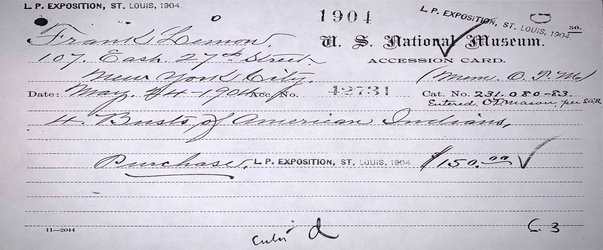 L. P. EXPOSITION, ST. LOUIS, 1904.
1904
L. P. EXPOSITION, ST. LOUIS, 1904
50.
Frank Lemon
U. S. National Museum.
107. East 27th Street.
ACCESSION CARD.
New York City.
(Mem. O. T. M.)
Date: May 24-1904 Acc. No. 42731 Cat. No. 231.080-83.
Entered. O.T. Mason per
4. Busts of American Indians,
Purchase. L. P. EXPOSITION, ST. LOUIS, 1904 $150.00 ✓
11—2044
d
C. 3